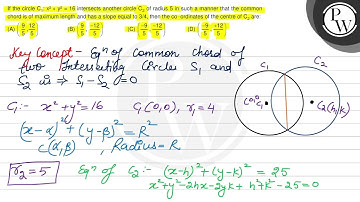 If the circle C₁: x² + y² = 16 intersects another circle C₂ of radius 5 in such a manner that the common
chord is of maximum length and has a slope equal to 3/4, then the co-ordinates of the centre of C₂ are:
Key Concept - Eqⁿ of Common Chord of
two Intersecting Circles S₁ and
S₂ is ⇒ S₁ - S₂ = 0
C₁:- x² + y² = 16
C₁(0,0), r₁ = 4
(x-α)² + (y-β)² = R²
C(α,β), Radius = R
r₂ = 5
Eqⁿ of C₂:- (x-h)² + (y-k)² = 25
x² + y² - 2hx - 2yk + h² + k² - 25 = 0
C₁
C₂
(0,0) C₁
C₂(h,k)